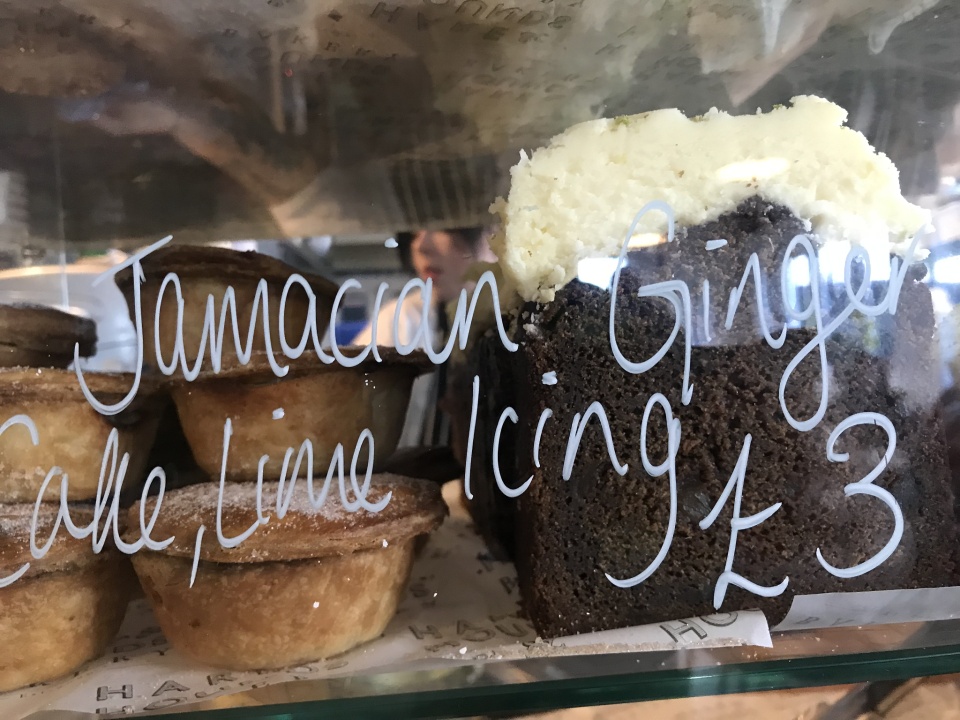 Jamaican Ginger
Cake, Lime Icing £3